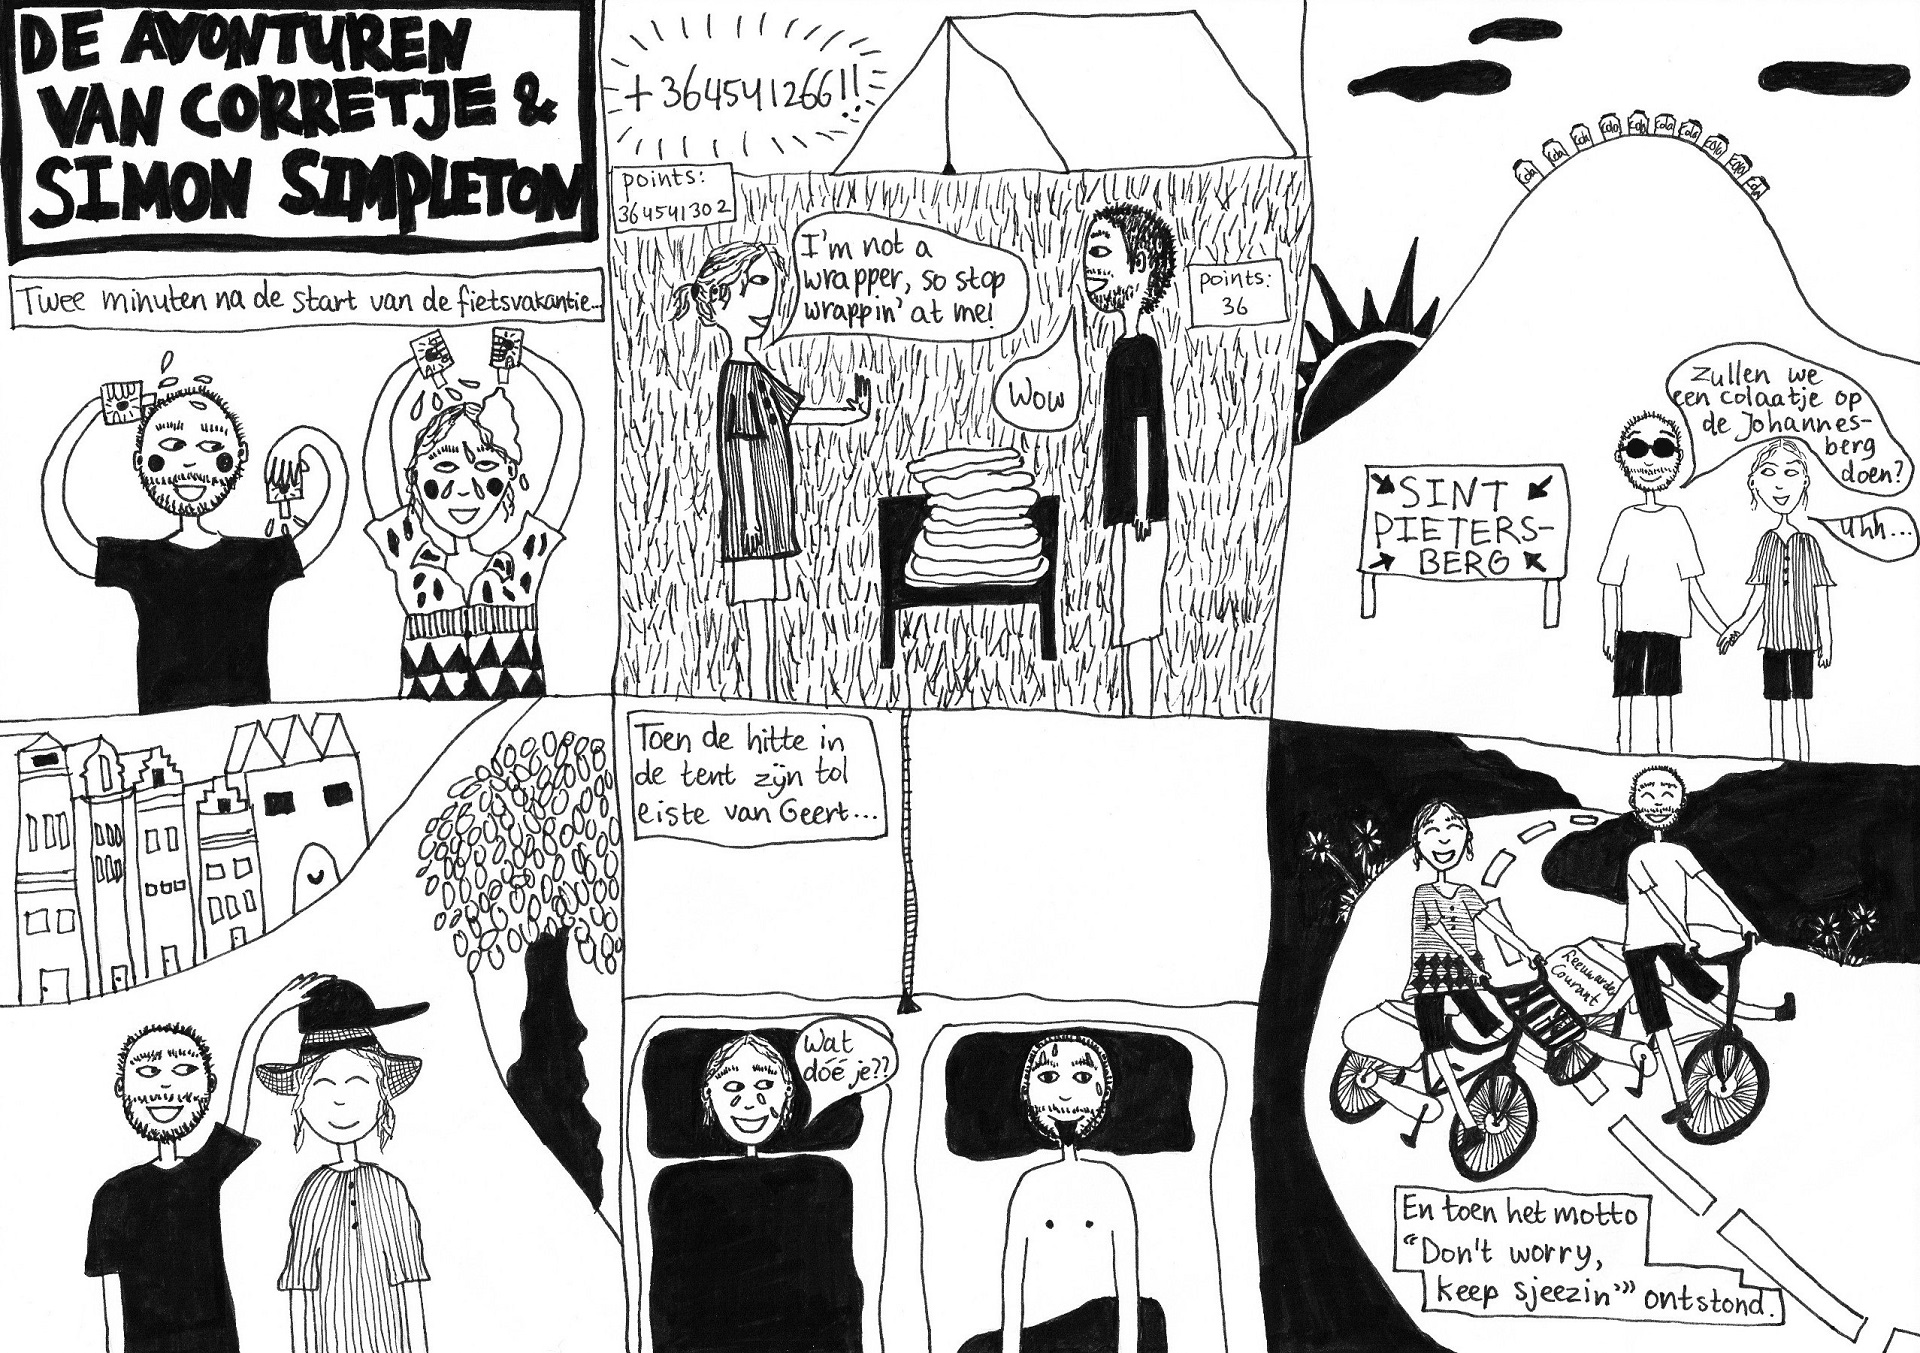 DE AVONTUREN
VAN CORRETJE &
SIMON SIMPLETON
Twee minuten na de start van de fietsvakantie...
+364541266!!
points:
364541302
I'm not a
wrapper, so stop
wrappin' at me!
Wow
points:
36
Cola
Cola
Cola
Cola
Cola
Cola
Cola
Cola
Cola
Cola
Zullen we
een colaatje op
de Johannes-
berg
doen?
Uhh...
SINT
PIETERS-
BERG
Toen de hitte in
de tent zijn tol
eiste van Geert...
Wat
dóé je??
Leeuwarder
Courant
En toen het motto
"Don't worry,
keep sjeezin'" ontstond.